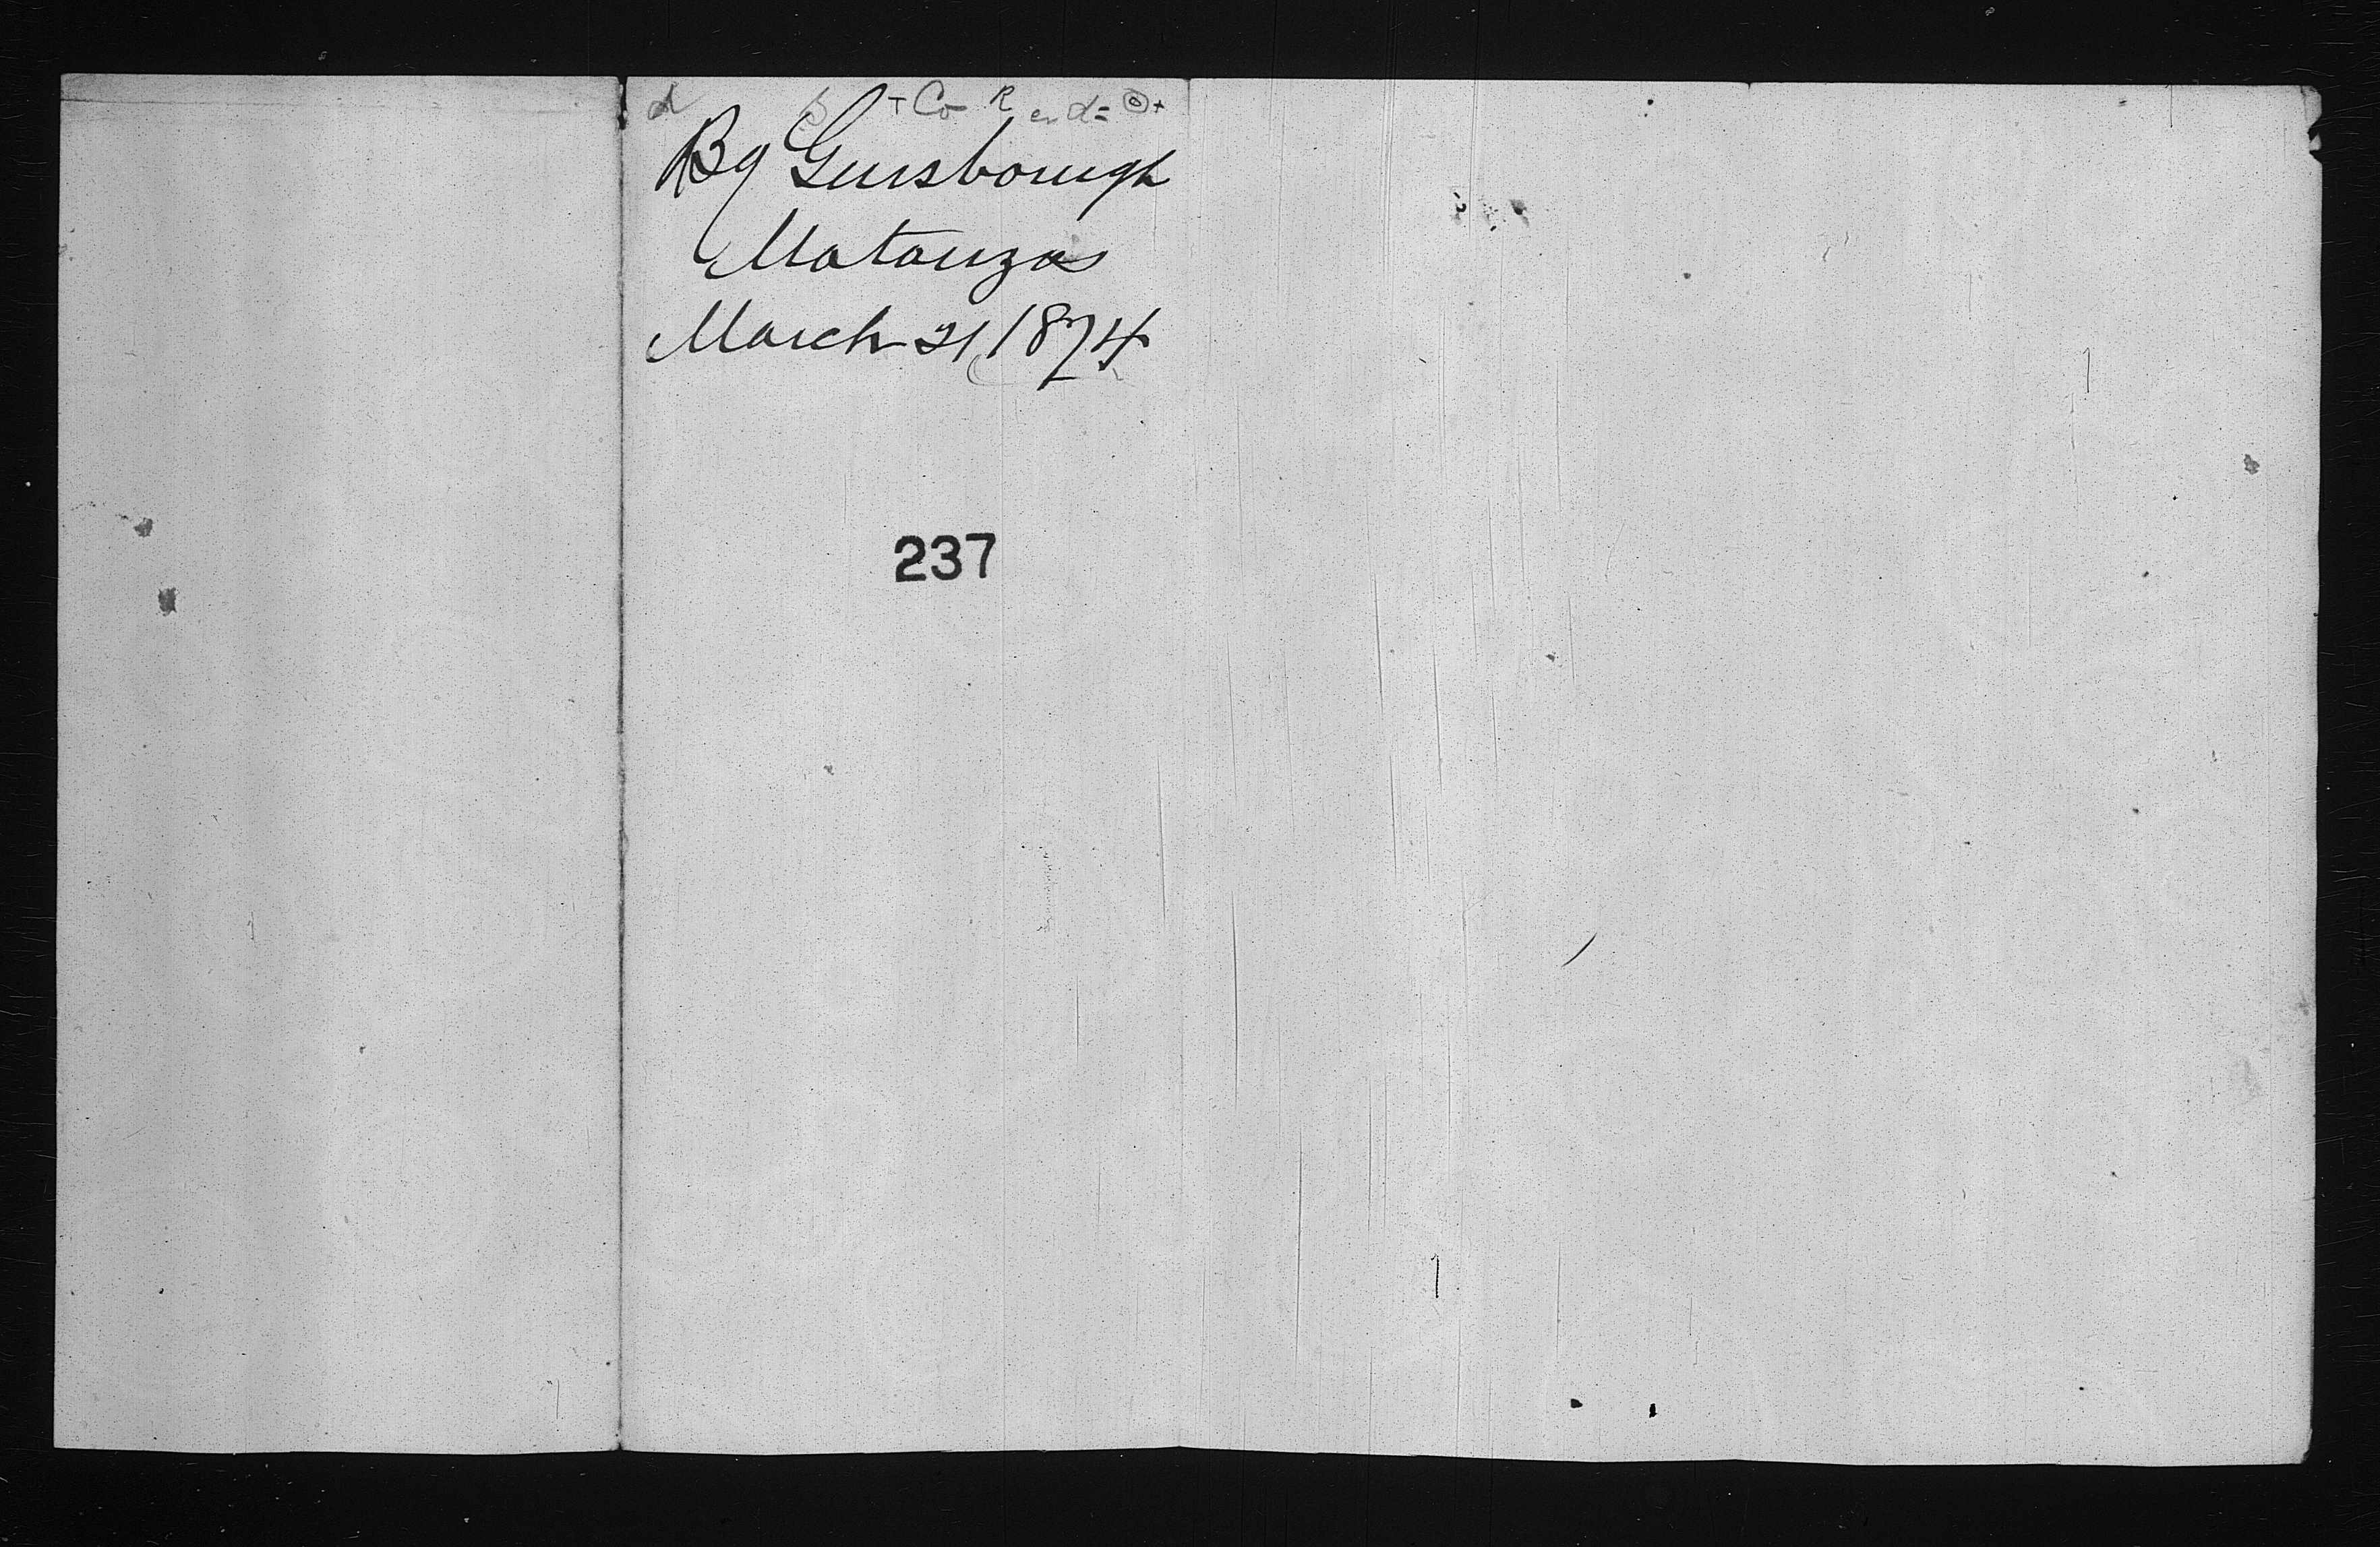 Bg Guisborough
Matanzas
March 21, 1874
237